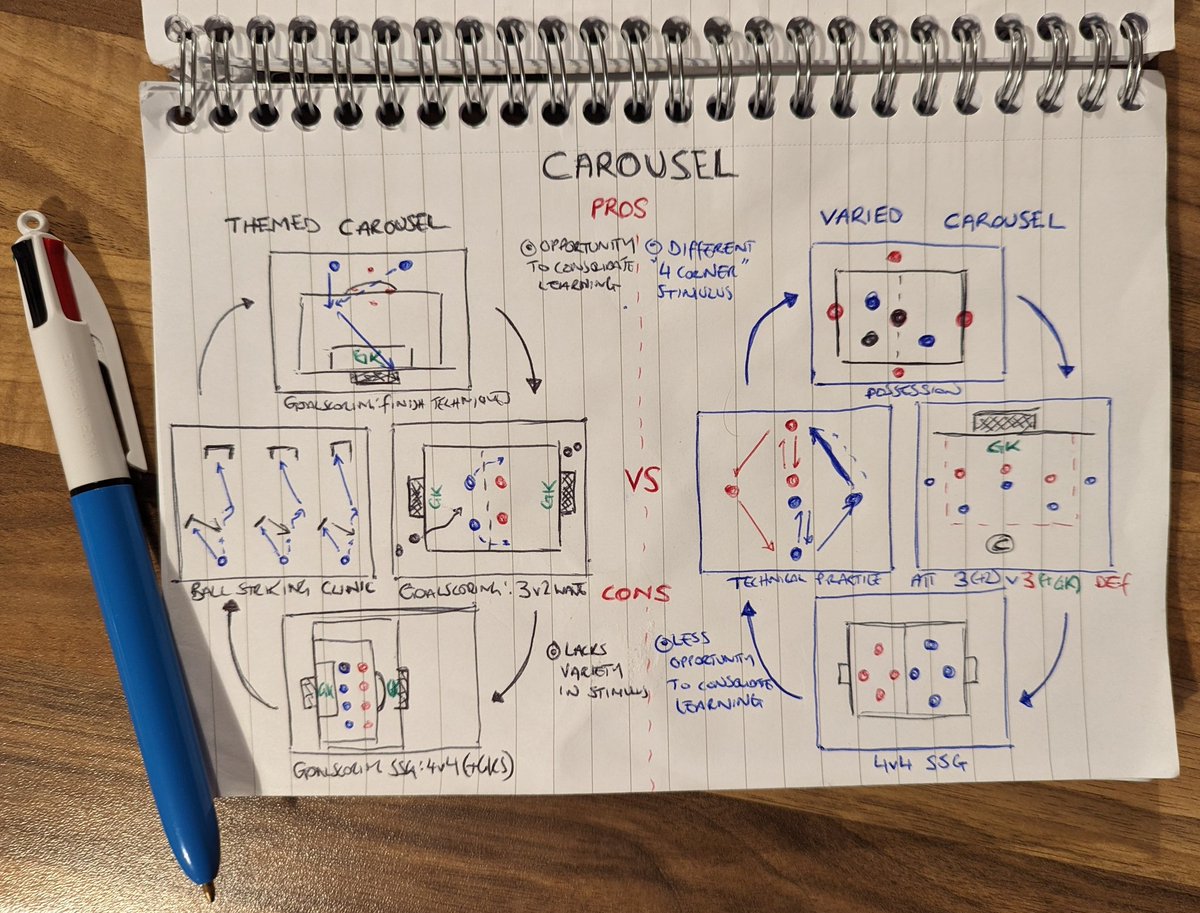 CAROUSEL
THEMED CAROUSEL
PROS
VARIED CAROUSEL
OPPORTUNITY
TO CONSOLIDATE
LEARNING
DIFFERENT
"4 CORNER"
STIMULUS
GK
GOALSCORING: FINISH TECHNIQUES
POSSESSION
GK
GK
BALL STRIKING CLINIC
GOALSCORING: 3v2 WAVE
VS
CONS
GK
C
TECHNICAL PRACTICE
ATT 3(+2) v 3(+GK) DEF
LACKS
VARIETY
IN STIMULUS
LESS
OPPORTUNITY
TO CONSOLIDATE
LEARNING
GK
GK
GOALSCORING SSG: 4v4 (+GKS)
4v4 SSG